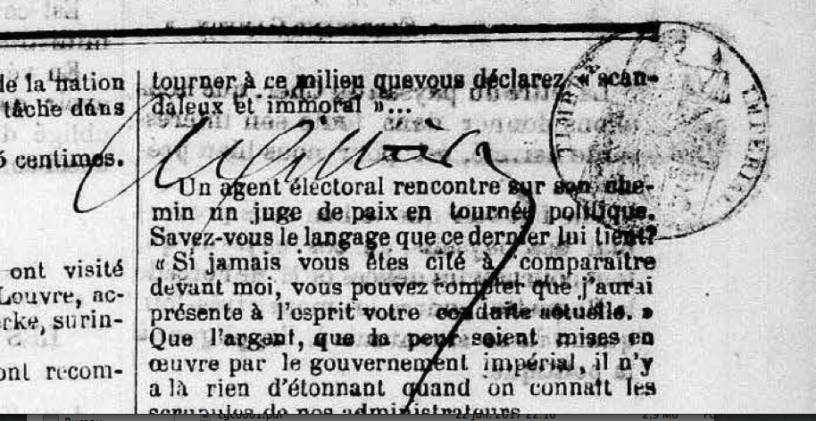 de la nation
tâche dans
centimes.
ont visité
Louvre, ac-
erke, surin-
ont recom-
tourner à ce milieu que vous déclarez « scan-
daleux et immoral »...
Un agent électoral rencontre sur son che-
min un juge de paix en tournée politique.
Savez-vous le langage que ce dernier lui tient?
« Si jamais vous êtes cité à comparaître
devant moi, vous pouvez compter que j'aurai
présente à l'esprit votre conduite actuelle. »
Que l'argent, que la peur soient mises en
œuvre par le gouvernement impérial, il n'y
a là rien d'étonnant quand on connaît les
scrupules de nos administrateurs
TIMBRE IMPERIAL